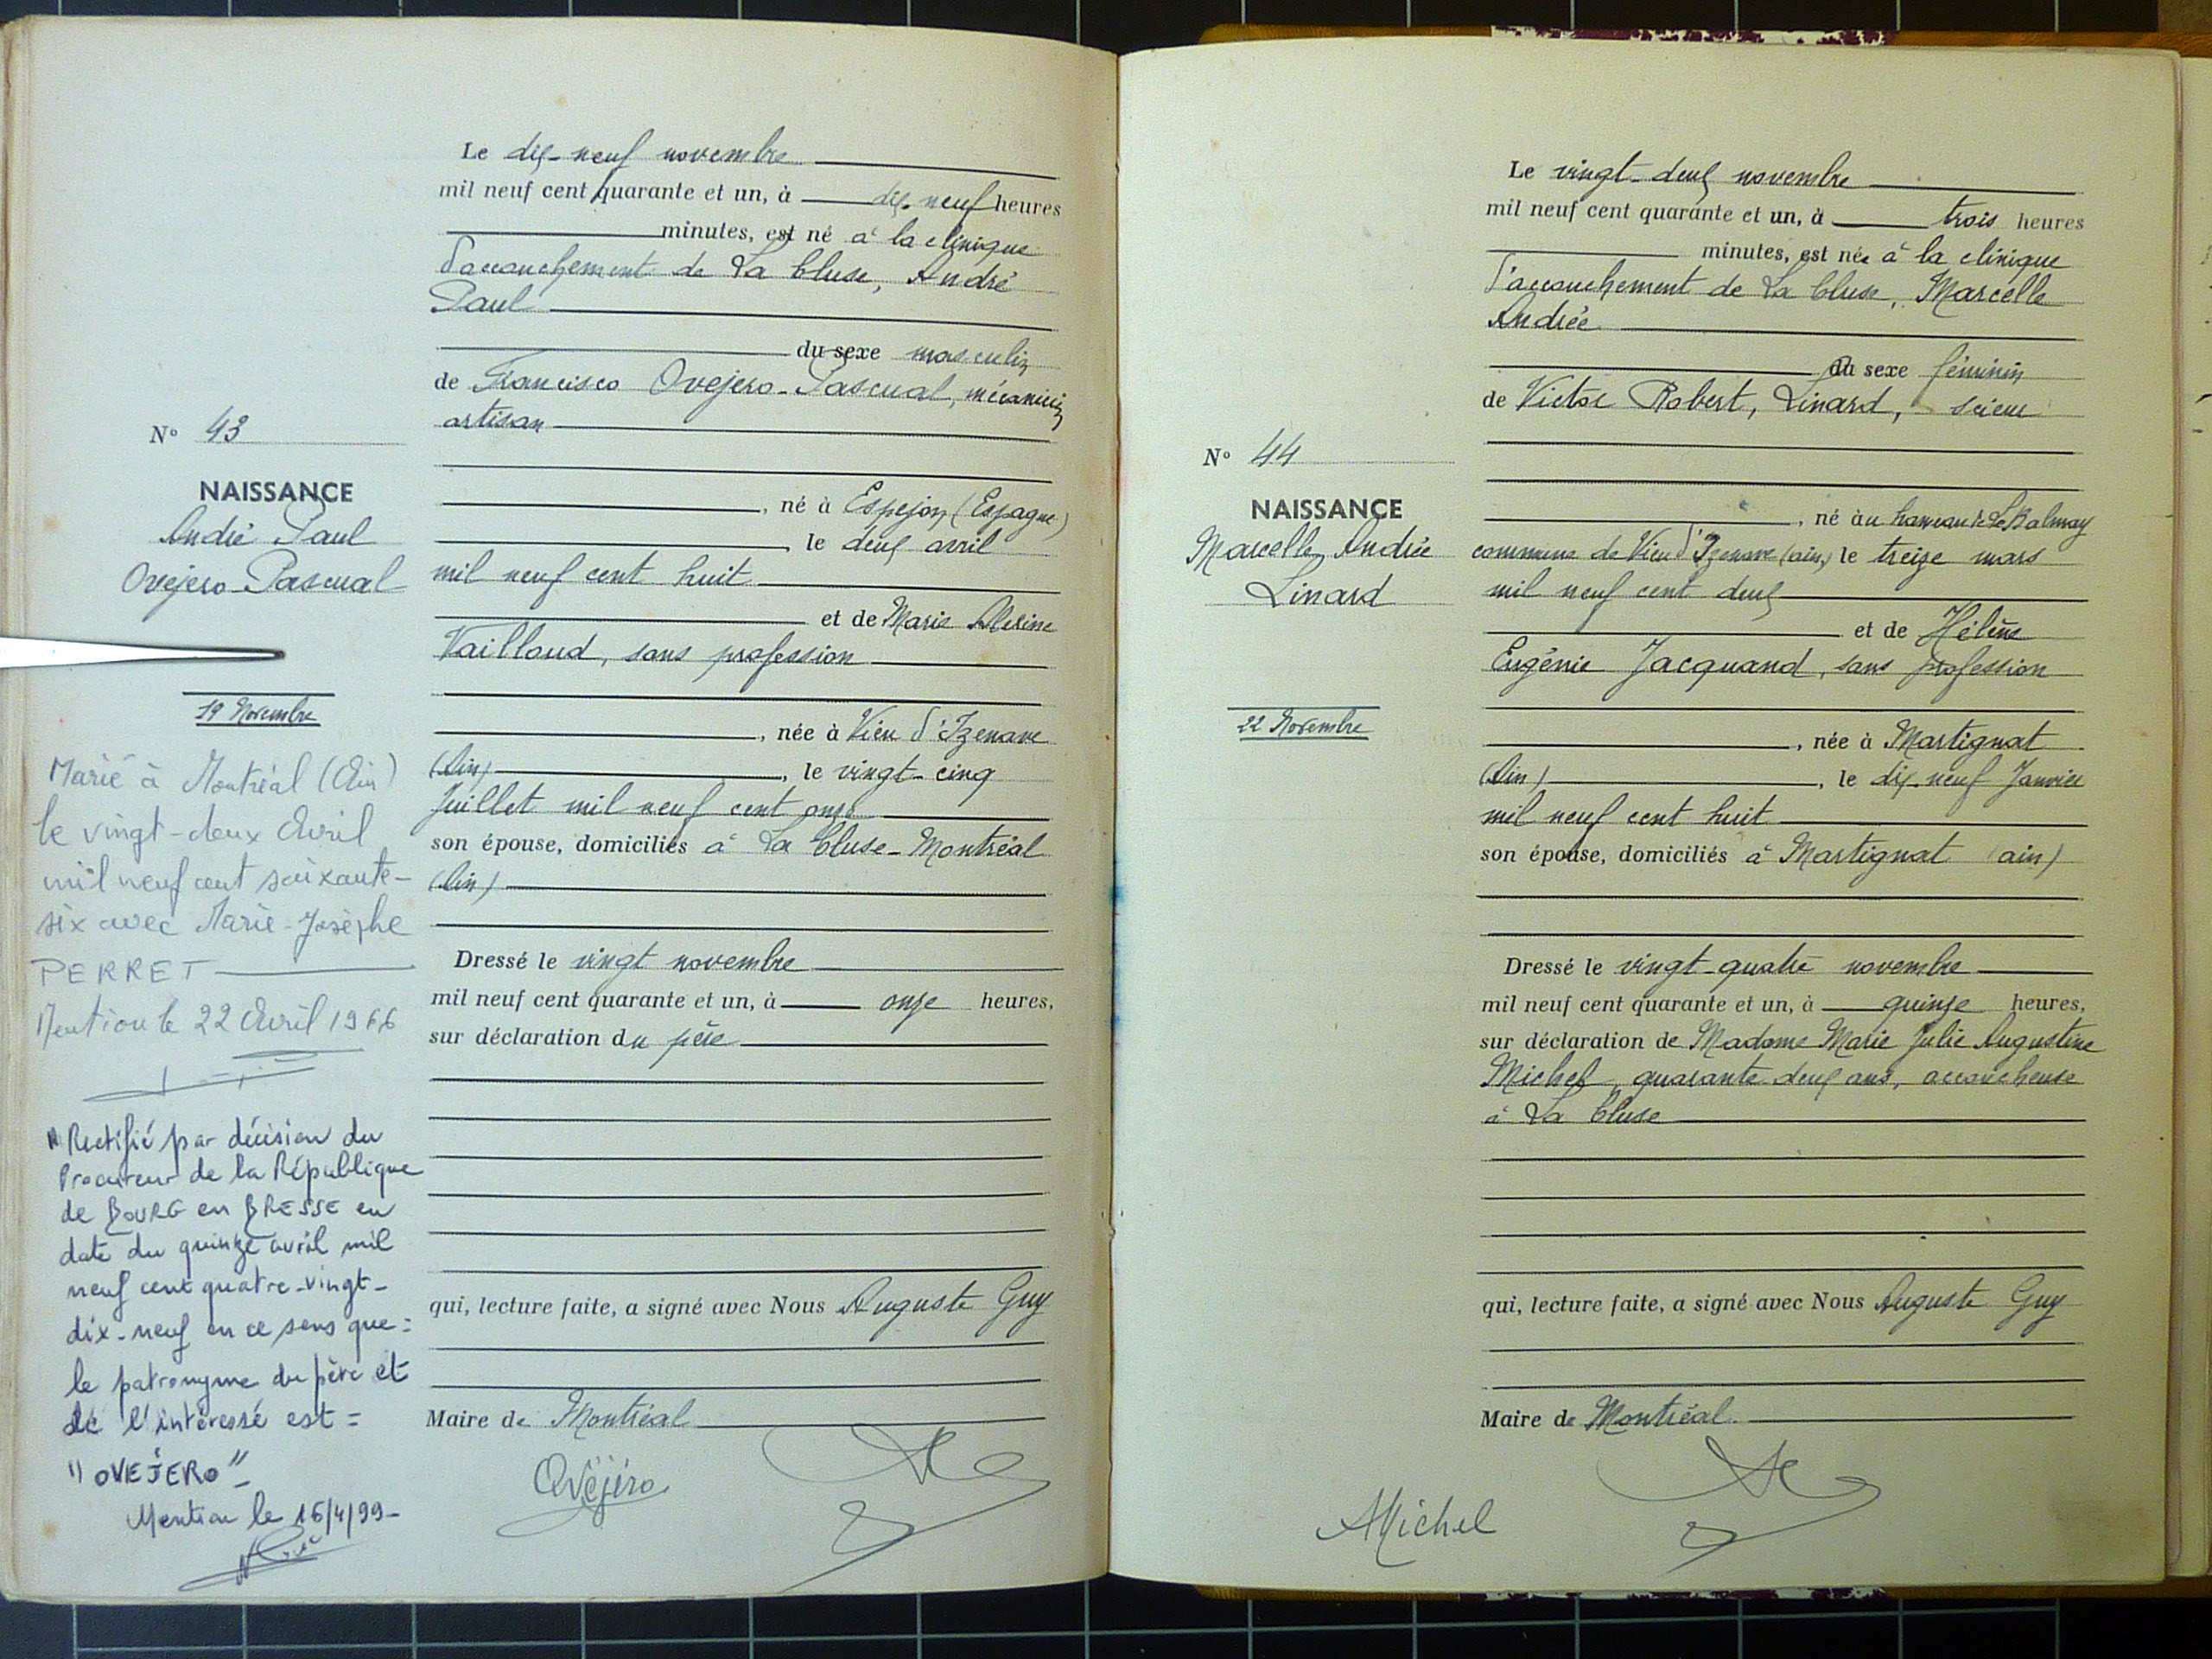 Le dix-neuf novembre
mil neuf cent quarante et un, à dix-neuf heures
minutes, est né à la clinique
d'accouchement de La Cluse, André
Paul
du sexe masculin
de Francisco Ovejero-Pascual, mécanicien
artisan
né à Espejon (Espagne)
le deux avril
mil neuf cent huit
et de Marie Alexine
Vailloud, sans profession
, née à Vieu d'Izenave
(Ain), le vingt-cinq
Juillet mil neuf cent onze
son épouse, domiciliés à La Cluse-Montréal
(Ain)
Dressé le vingt novembre
mil neuf cent quarante et un, à onze heures,
sur déclaration du père
qui, lecture faite, a signé avec Nous Auguste Guy
Maire de Montréal
Ovéjéro
N° 43
NAISSANCE
André Paul
Ovejero-Pascual
19 Novembre
Marié à Montréal (Ain)
le vingt-deux Avril
mil neuf cent soixante-
six avec Marie-Josèphe
PERRET
Mention le 22 Avril 1966
"Rectifié par décision du
Procureur de la République
de BOURG en BRESSE en
date du quinze avril mil
neuf cent quatre-vingt-
dix-neuf en ce sens que :
le patronyme du père et
de l'intéressé est =
"OVEJERO"
Mention le 16/4/99-
Le vingt-deux novembre
mil neuf cent quarante et un, à trois heures
minutes, est née à la clinique
d'accouchement de La Cluse, Marcelle
Andrée
du sexe féminin
de Victor Robert, Linard, scieur
, né au hameau de Le Balmay
commune de Vieu d'Izenave (ain), le treize mars
mil neuf cent deux
et de Hélène
Eugénie Jacquand, sans profession
, née à Martignat
(Ain), le dix-neuf Janvier
mil neuf cent huit
son épouse, domiciliés à Martignat (ain)
Dressé le vingt-quatre novembre
mil neuf cent quarante et un, à quinze heures,
sur déclaration de Madame Marie Julie Augustine
Michel, quarante deux ans, accoucheuse
à La Cluse
qui, lecture faite, a signé avec Nous Auguste Guy
Maire de Montréal
Michel
N° 44
NAISSANCE
Marcelle Andrée
Linard
22 Novembre